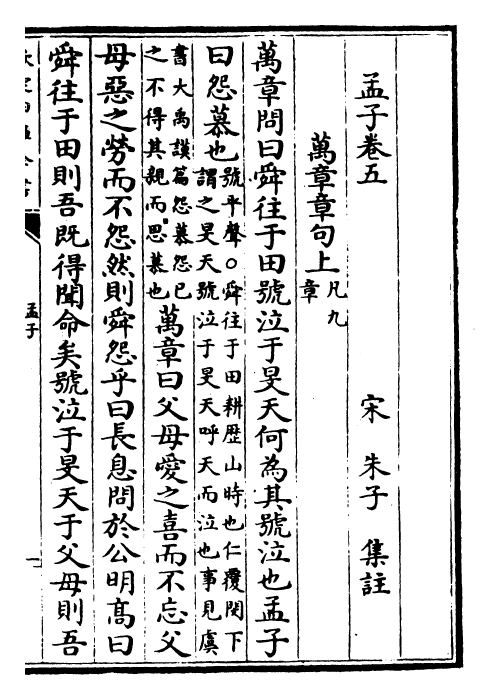 孟子卷五
宋 朱子 集註
萬章章句上
凡九
章
萬章問曰舜往于田號泣于旻天何為其號泣也孟子
曰怨慕也
號平聲○舜往于田耕歴山時也仁覆閔下
謂之旻天號泣于旻天呼天而泣也事見虞
書大禹謨篇怨慕怨已
之不得其親而思慕也
萬章曰父母愛之喜而不忘父
母惡之勞而不怨然則舜怨乎曰長息問於公明髙曰
舜往于田則吾既得聞命矣號泣于旻天于父母則吾
孟子
一